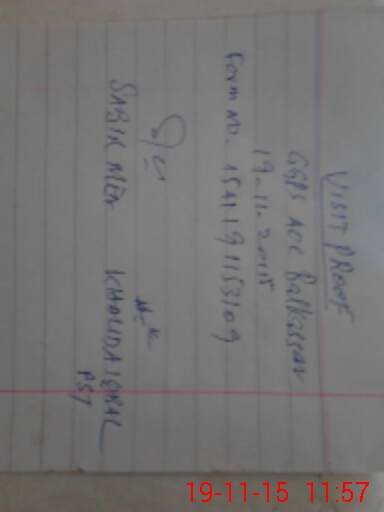 VISIT PROOF
GGPS AOC Balkassar
19-11-2015
Form No. 1541191153109
SABIR MEN KHALIDA IQBAL
PST
19-11-15 11:57